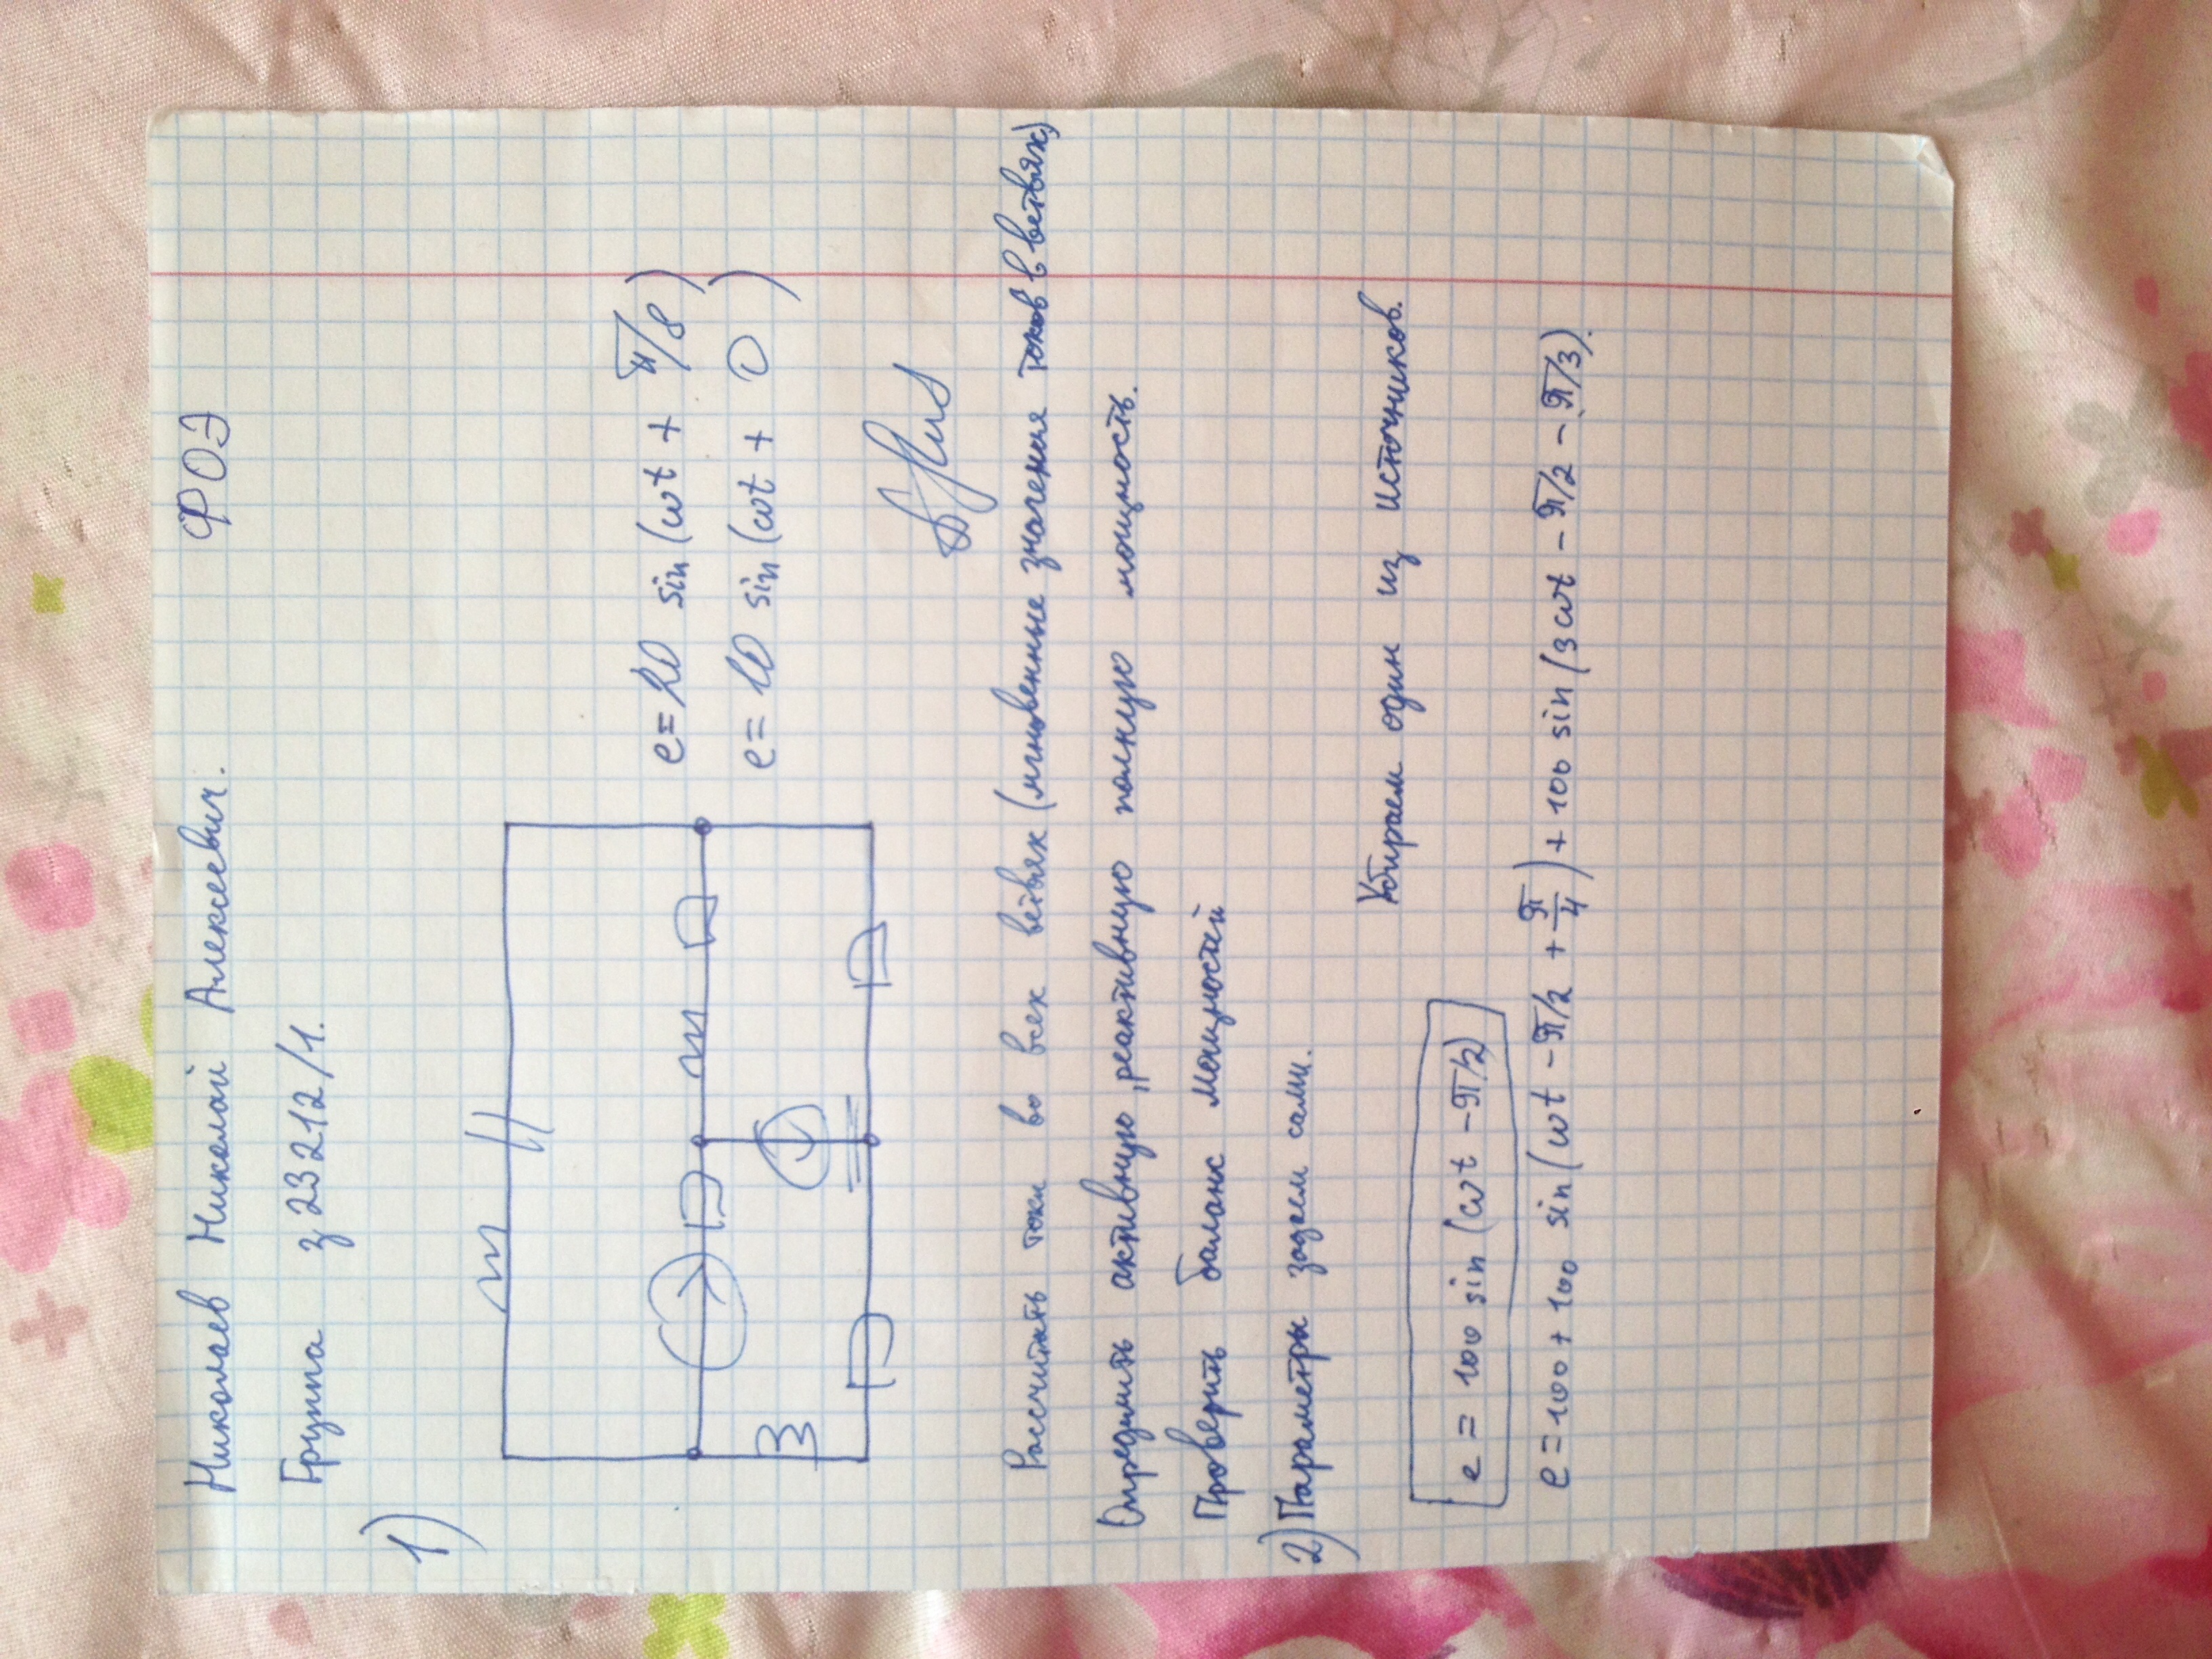 ФОЭ
Николаев Николай Алексеевич.
Группа з23212/1.
1)
e=20 sin(ωt + π/8)
e= 10 sin(ωt + 0)
Рассчитать токи во всех ветвях (мгновенные значения токов в ветвях)
Определить активную, реактивную полную мощность.
Проверить баланс мощностей
2) Параметры задаем сами.
Убираем один из источников.
e = 100 sin(ωt - π/2)
e = 100 + 100 sin(ωt - π/2 + π/4) + 100 sin(3ωt - π/2 - π/3).